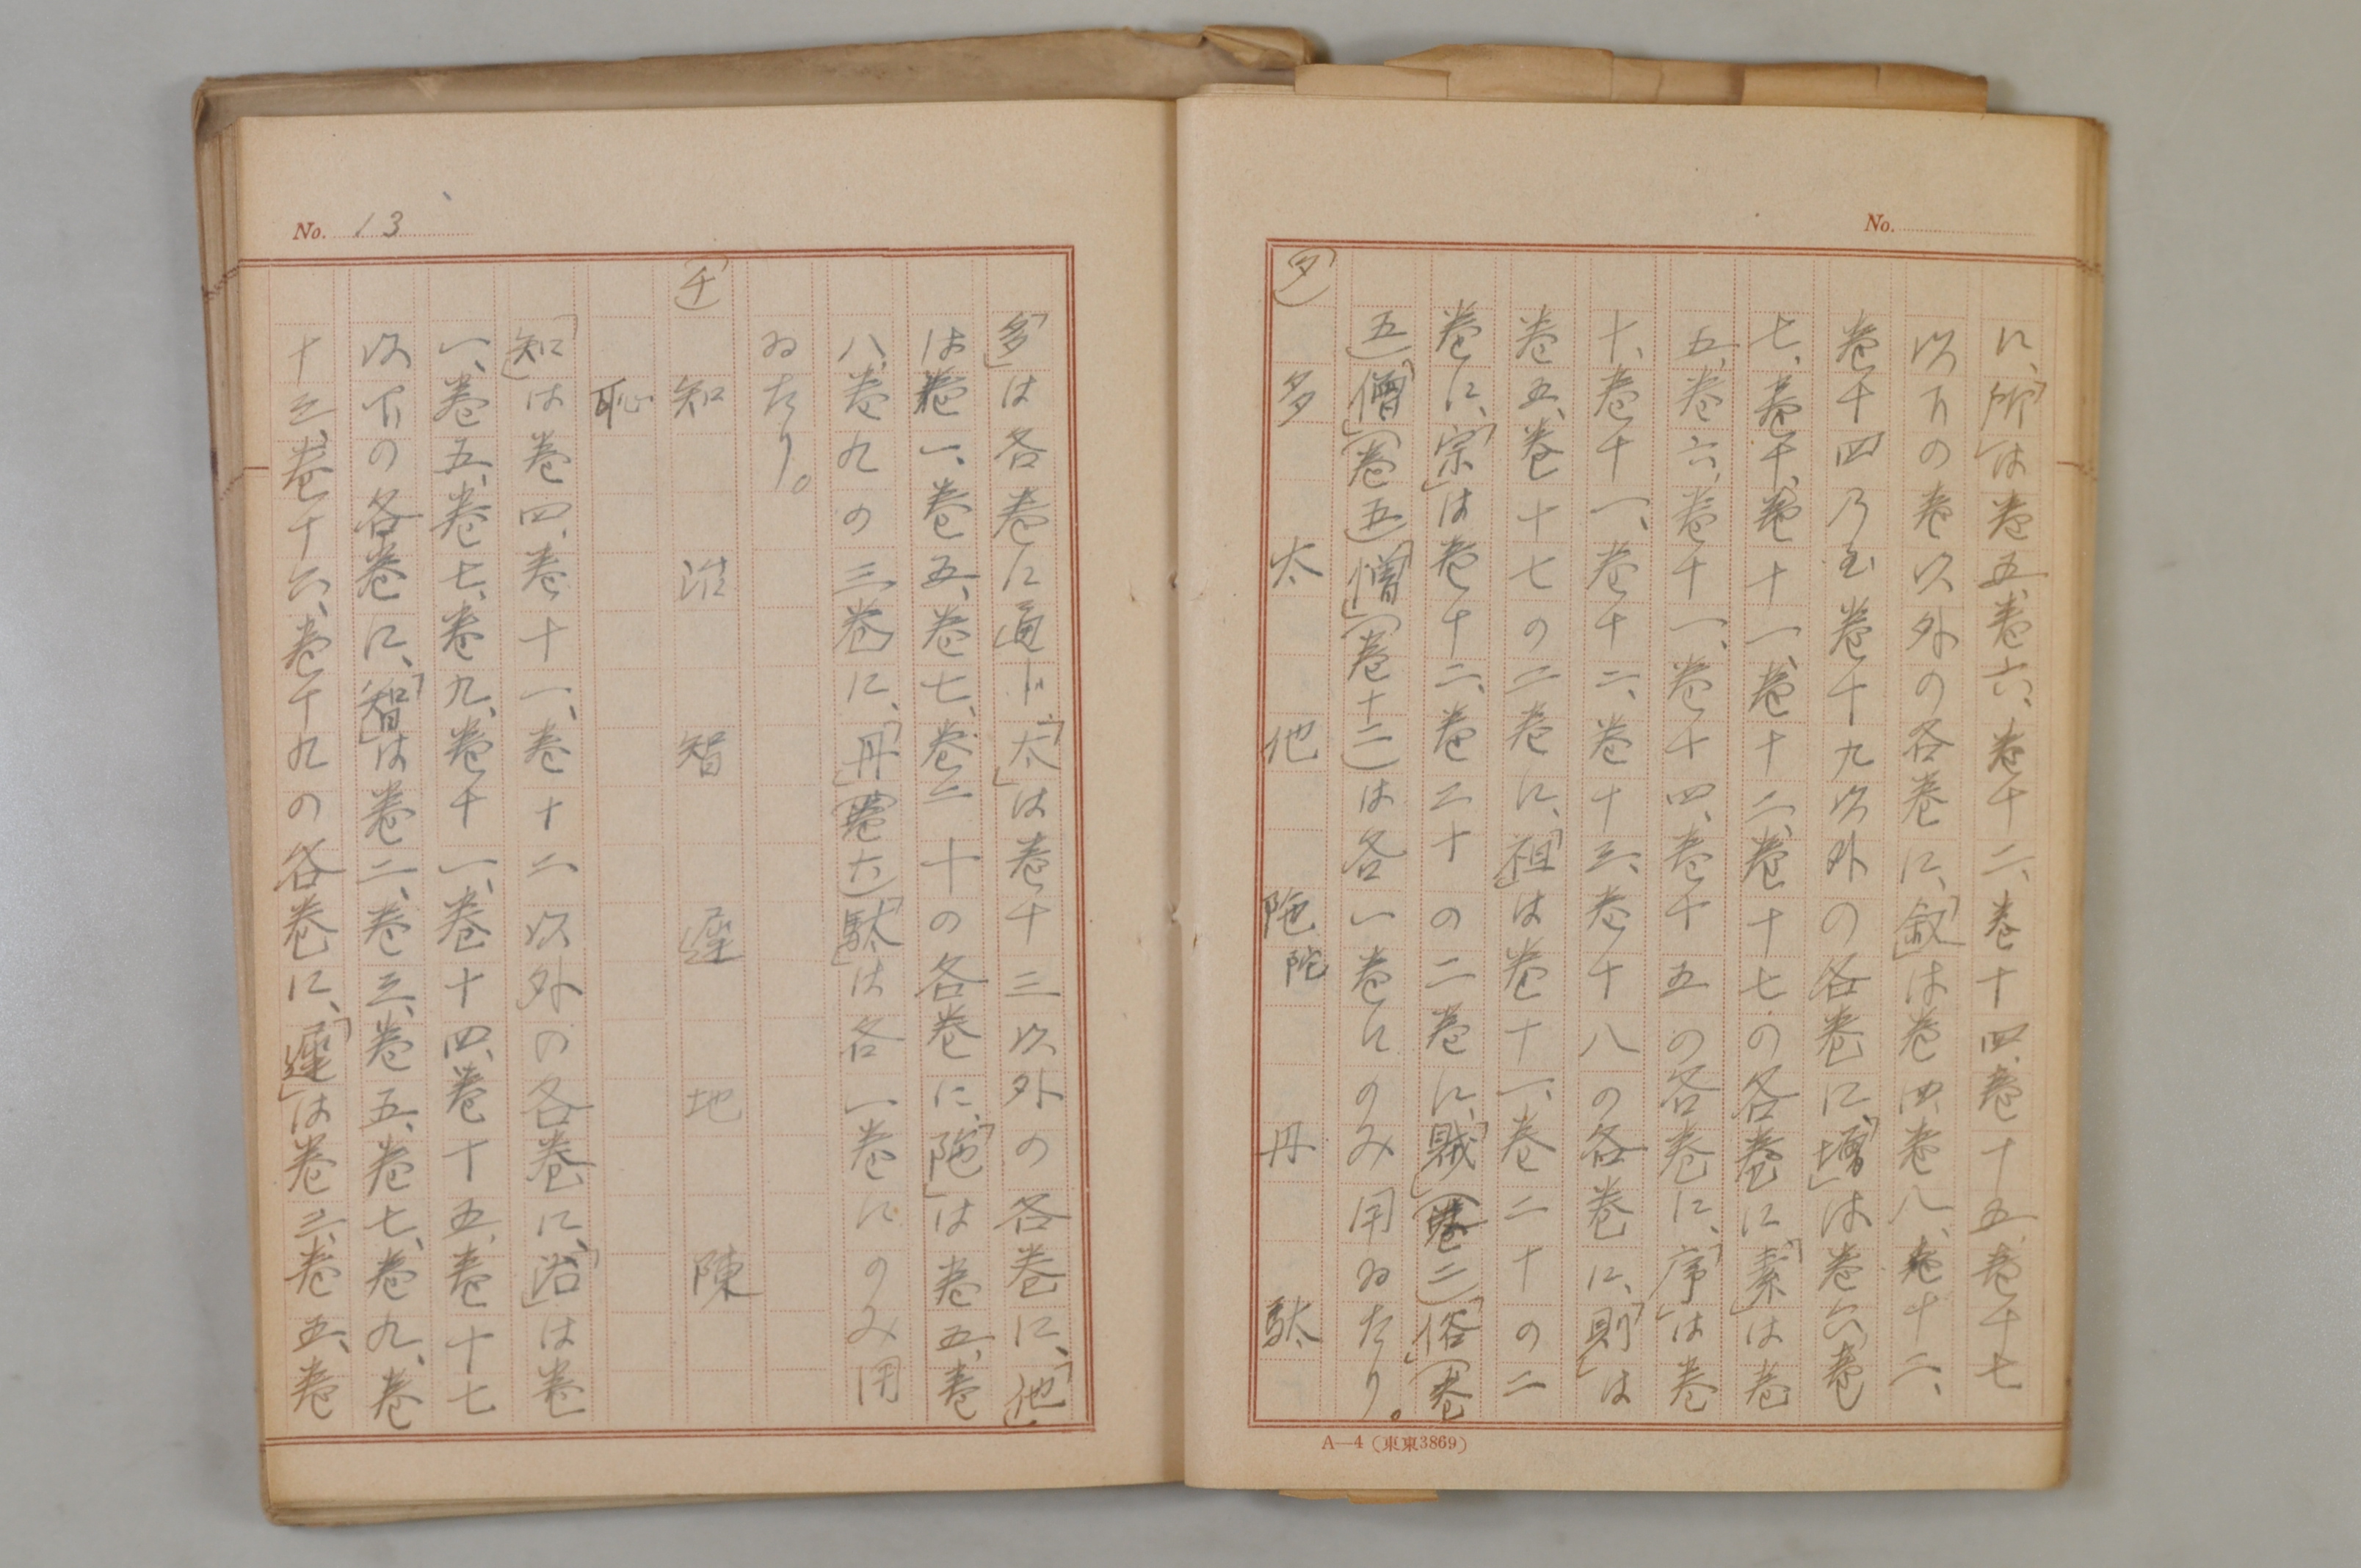 No.
に、「所」は巻五、巻六、巻十二、巻十四、巻十五、巻十七
以下の巻以外の各巻に、「叙」は巻四、巻八、巻十二、
巻十四乃至巻十九以外の各巻に、「増」は巻六、巻
七、巻十、巻十一、巻十二、巻十七の各巻に「素」は巻
五、巻六、巻十一、巻十四、巻十五の各巻に、「序」は巻
十、巻十一、巻十二、巻十三、巻十八の各巻に、「則」は
巻五、巻十七の二巻に、「祖」は巻十一、巻二十の二
巻に、「宗」は巻十二、巻二十の二巻に、「賊」(巻二)「俗」(巻
五)「僧」(巻五)「憎」(巻十二)は各一巻にのみ用ゐたり。
「タ」 多 太 他 陁陀 丹 駄
A—4(東東3869)
No. 13
「多」は各巻に通じ、「太」は巻十三以外の各巻に、「他」
は巻一、巻五、巻七、巻二十の各巻に、「陁」は巻五、巻
八、巻九の三巻に、「丹」(巻六)「駄」は各一巻にのみ用
ゐたり。
「チ」 知 治 智 遅 地 陳
恥
「知」は巻四、巻十一、巻十二以外の各巻に、「治」は巻
一、巻五、巻七、巻九、巻十一、巻十四、巻十五、巻十七
以下の各巻に、「智」は巻二、巻三、巻五、巻七、巻九、巻
十三、巻十六、巻十九の各巻に、「遅」は巻三、巻五、巻